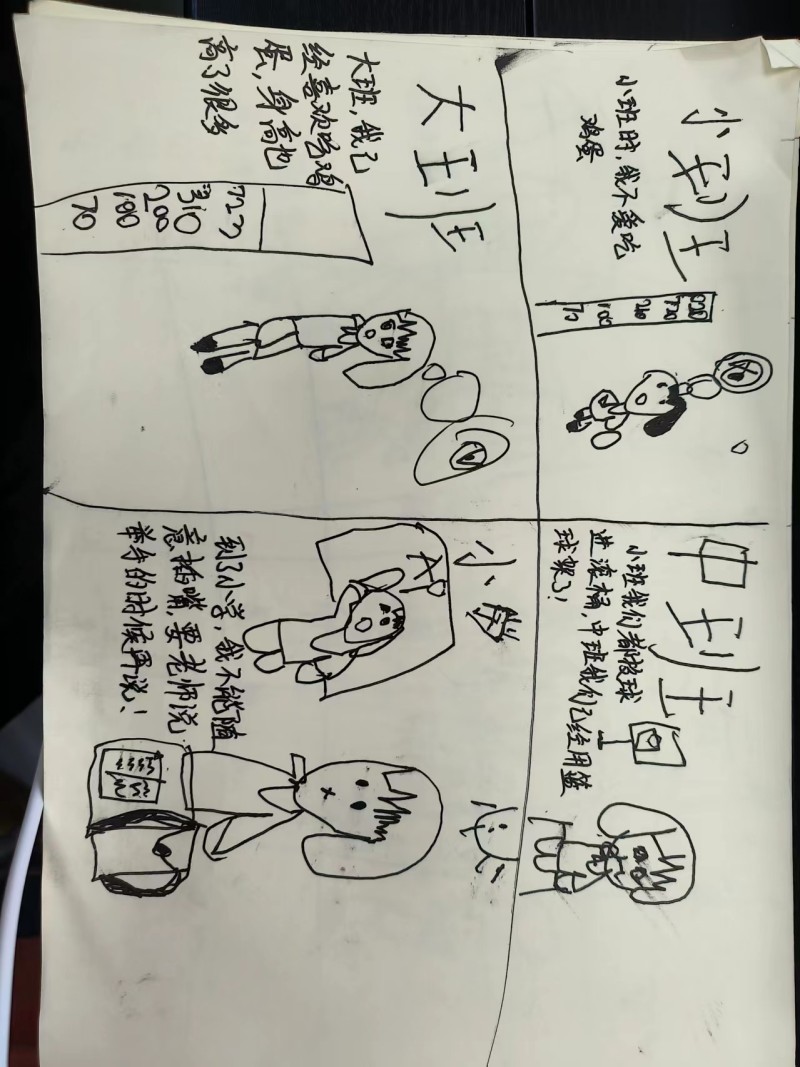 小班
小班时，我不爱吃
鸡蛋
100
70
中班
小班我们都投球
进滚桶，中班我们已经用篮
球架了！
大班
大班，我已
经喜欢吃鸡
蛋，身高也
高了很多
310
200
100
70
小学
到了小学，我不能随
意插嘴，要老师说
举手的时候再说！